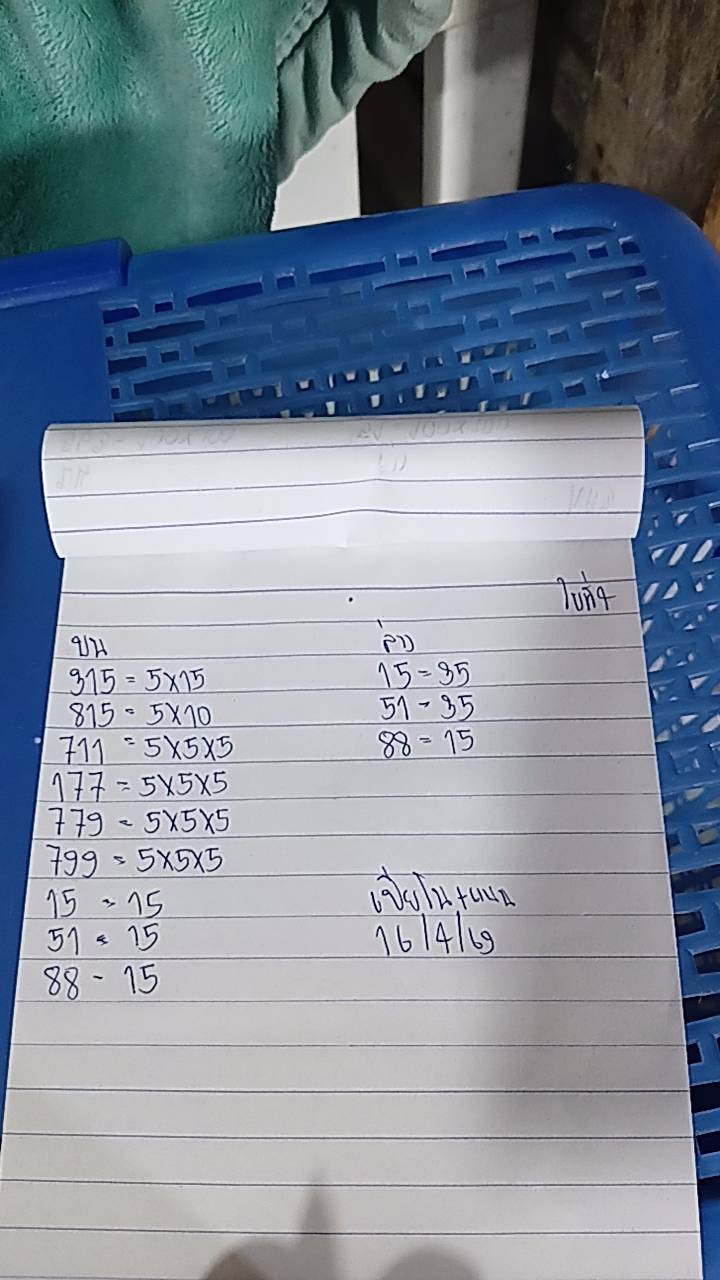 ใบที่4
บน
315 = 5×15
815 = 5×10
711 = 5×5×5
177 = 5×5×5
779 = 5×5×5
799 = 5×5×5
15 = 15
51 = 15
88 - 15
ล่าง
15 = 35
51 = 35
88 = 15
16/4/69